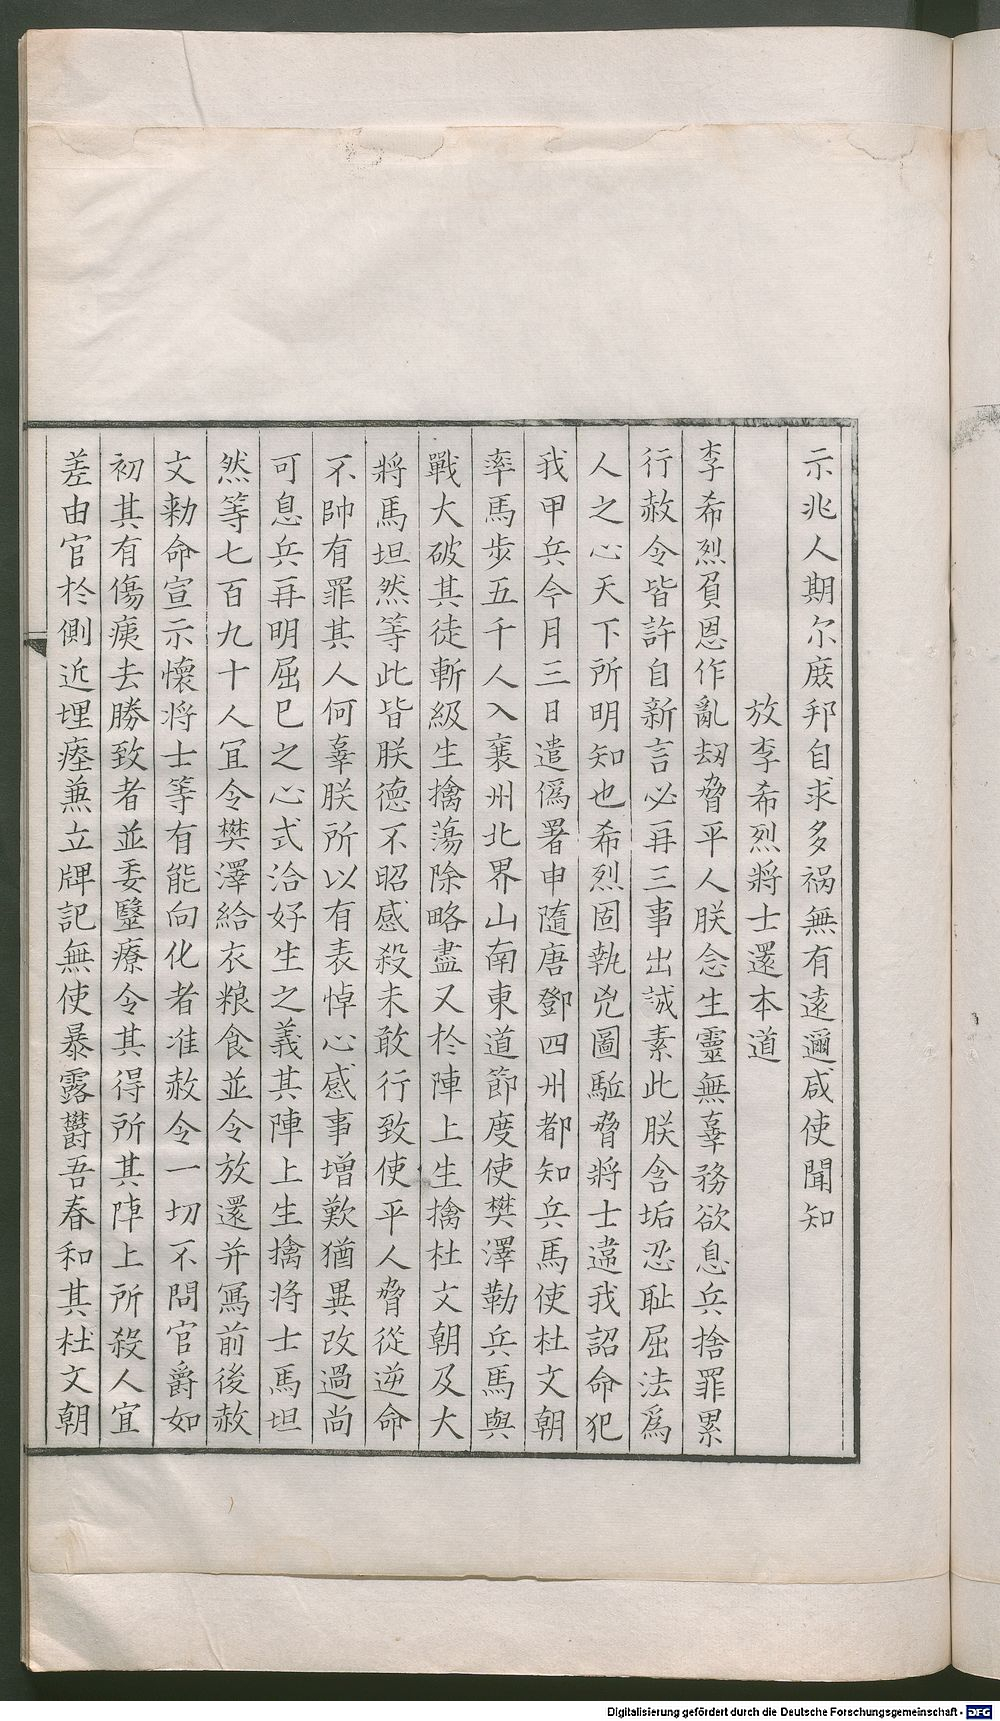 示兆人期尔庶邦自求多禍無有遠邇咸使聞知
放李希烈將士還本道
李希烈負恩作亂刼脅平人朕念生靈無辜務欲息兵捨罪累
行赦令皆許自新言必再三事出誠素此朕含垢忍恥屈法爲
人之心天下所明知也希烈固執兇圖駈脅將士違我詔命犯
我甲兵今月三日遣僞署申隨唐鄧四州都知兵馬使杜文朝
率馬步五千人入襄州北界山南東道節度使樊澤勒兵馬與
戰大破其徒斬級生擒蕩除略盡又於陣上生擒杜文朝及大
將馬坦然等此皆朕德不昭感殺未敢行致使平人脅從逆命
不帥有罪其人何辜朕所以有表悼心感事增歎猶異改過尚
可息兵再明屈已之心式洽好生之義其陣上生擒將士馬坦
然等七百九十人冝令樊澤給衣粮食並令放還并寫前後赦
文勑命宣示懷將士等有能向化者准赦令一切不問官爵如
初其有傷痍去勝致者並委毉療令其得所其陣上所殺人宜
差由官於側近埋瘞蕪立牌記無使暴露欝吾春和其杜文朝
Digitalisierung gefördert durch die Deutsche Forschungsgemeinschaft - DFG